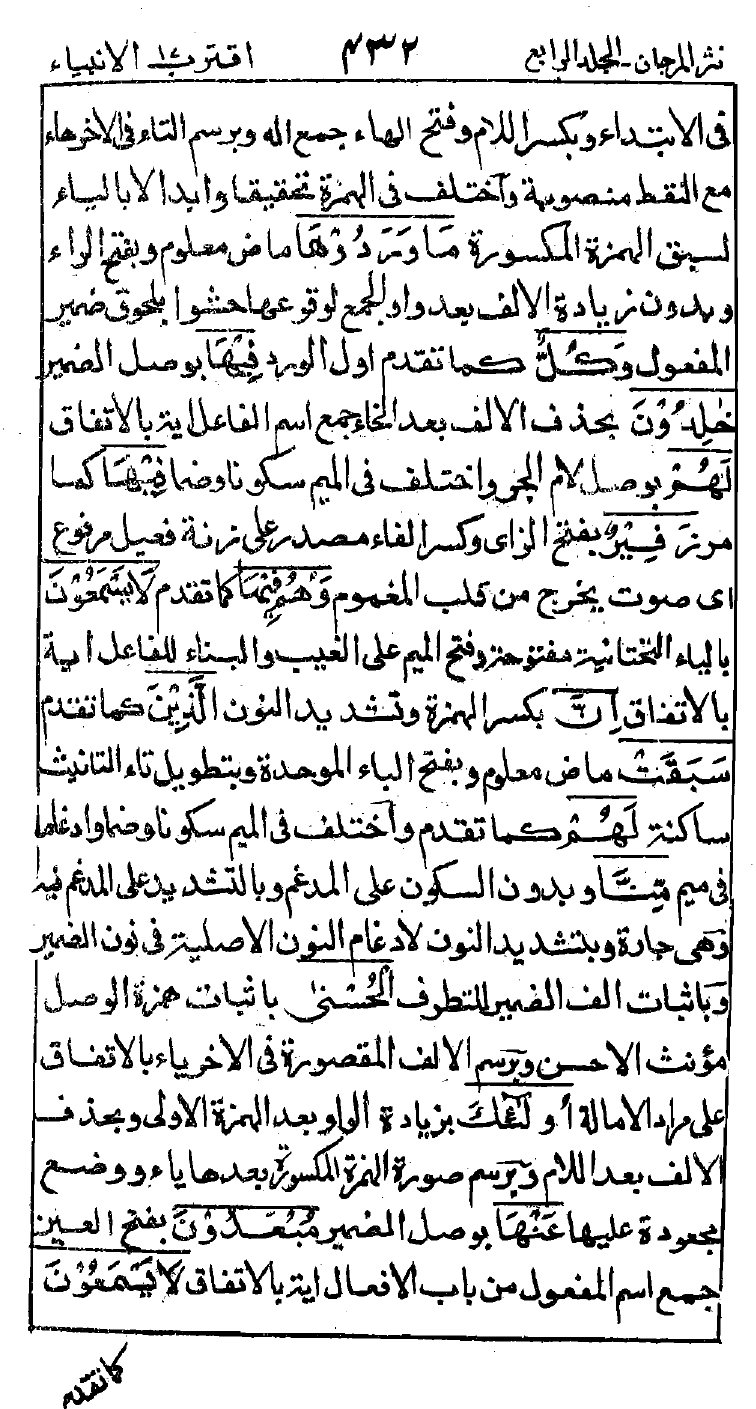 نثر المرجان - المجلد الرابع ٤٣٢ اقترب ١٧ الانبياء
فى الابتداء وبكسر اللام وفتح الهاء جمع اله وبرسم التاء فى الاخر هاء
مع النقط منصوبة واختلف فى الهمزة تحقيقا وابدالا بالياء
لسبق الهمزة المكسورة مَا وَرَدُوْهَا ماض معلوم وبفتح الراء
وبدون زيادة الالف بعد واو الجمع لوقوعها حشوا بلحوق ضمير
المفعول وَكُلٌّ كما تقدم اول الورد فِيْهَا بوصل الضمير
خٰلِدُوْنَ بحذف الالف بعد الخاء جمع اسم الفاعل اية بالاتفاق
لَهُمْ بوصل لام الجر واختلف فى الميم سكونا وضما فِيْهَا كما
مر زَفِيْرٌ بفتح الزاى وكسر الفاء مصدر على زنة فعيل مرفوع
اى صوت يخرج من قلب المغموم وَهُمْ فِيْهَا كما تقدم لَا يَسْمَعُوْنَ
بالياء التحتانية مفتوحة وفتح الميم على الغيب والبناء للفاعل اية
بالاتفاق اِنَّ بكسر الهمزة وتشديد النون الَّذِيْنَ كما تقدم
سَبَقَتْ ماض معلوم وبفتح الباء الموحدة وبتطويل تاء التانيث
ساكنة لَهُمْ كما تقدم واختلف فى الميم سكونا وضما وادغاما
فى ميم مِّنَّا وبدون السكون على المدغم وبالتشديد على المدغم فيه
وهى جارة وبتشديد النون لادغام النون الاصلية فى نون الضمير
وباثبات الف الضمير للتطرف الْحُسْنٰى باثبات همزة الوصل
مؤنث الاحسن وبرسم الالف المقصورة فى الاخر ياء بالاتفاق
على مراد الامالة اُولٰٓئِكَ بزيادة الواو بعد الهمزة الاولى وبحذف
الالف بعد اللام وبرسم صورة الهمزة المكسورة بعدها ياء ووضع
مجعودة عليها عَنْهَا بوصل الضمير مُبْعَدُوْنَ بفتح العين
جمع اسم المفعول من باب الافعال اية بالاتفاق لَا يَسْمَعُوْنَ
كما تقدم